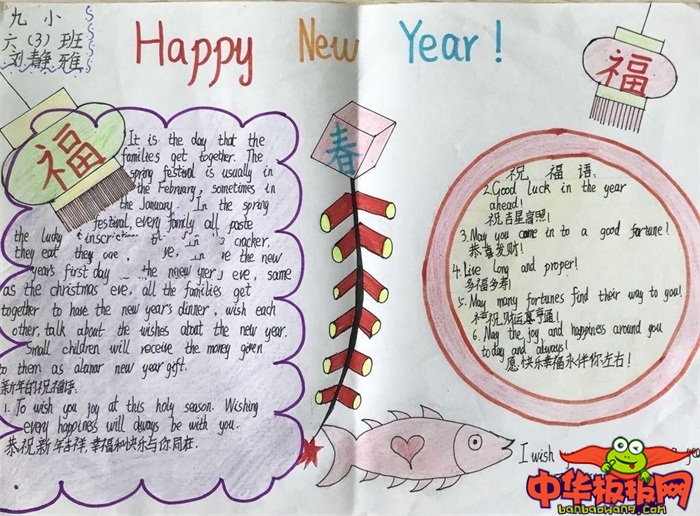 九小
六（3）班
刘静雅
Happy New Year!
福
福
春
It is the day that the
families get together. The
spring festival is usually in
the February, sometimes in
the January. In the spring
festival, every family all paste
the lucky inscription cracker,
they eat they are the new
years first day the new yers eve, same
as the christmas eve, all the families get
together to have the new years dinner, wish each
other, talk about the wishes about the new year.
Small children will receive the money given
to them as alanar new year gift.
新年的祝福语:
1. To wish you joy at this holy season. Wishing
every happiness will always be with you.
恭祝新年吉祥,幸福和快乐与你同在.
祝福语:
2. Good luck in the year
ahead!
祝吉星高照!
3. May you come in to a good fortune!
恭喜发财!
4. Live long and proper!
多福多寿!
5. May many fortunes find their way to you!
祝财运亨通!
6. May the joy and happiness around you
today and always!
愿快乐幸福永伴你左右!
I wish
中华板报网
banbaowang.com